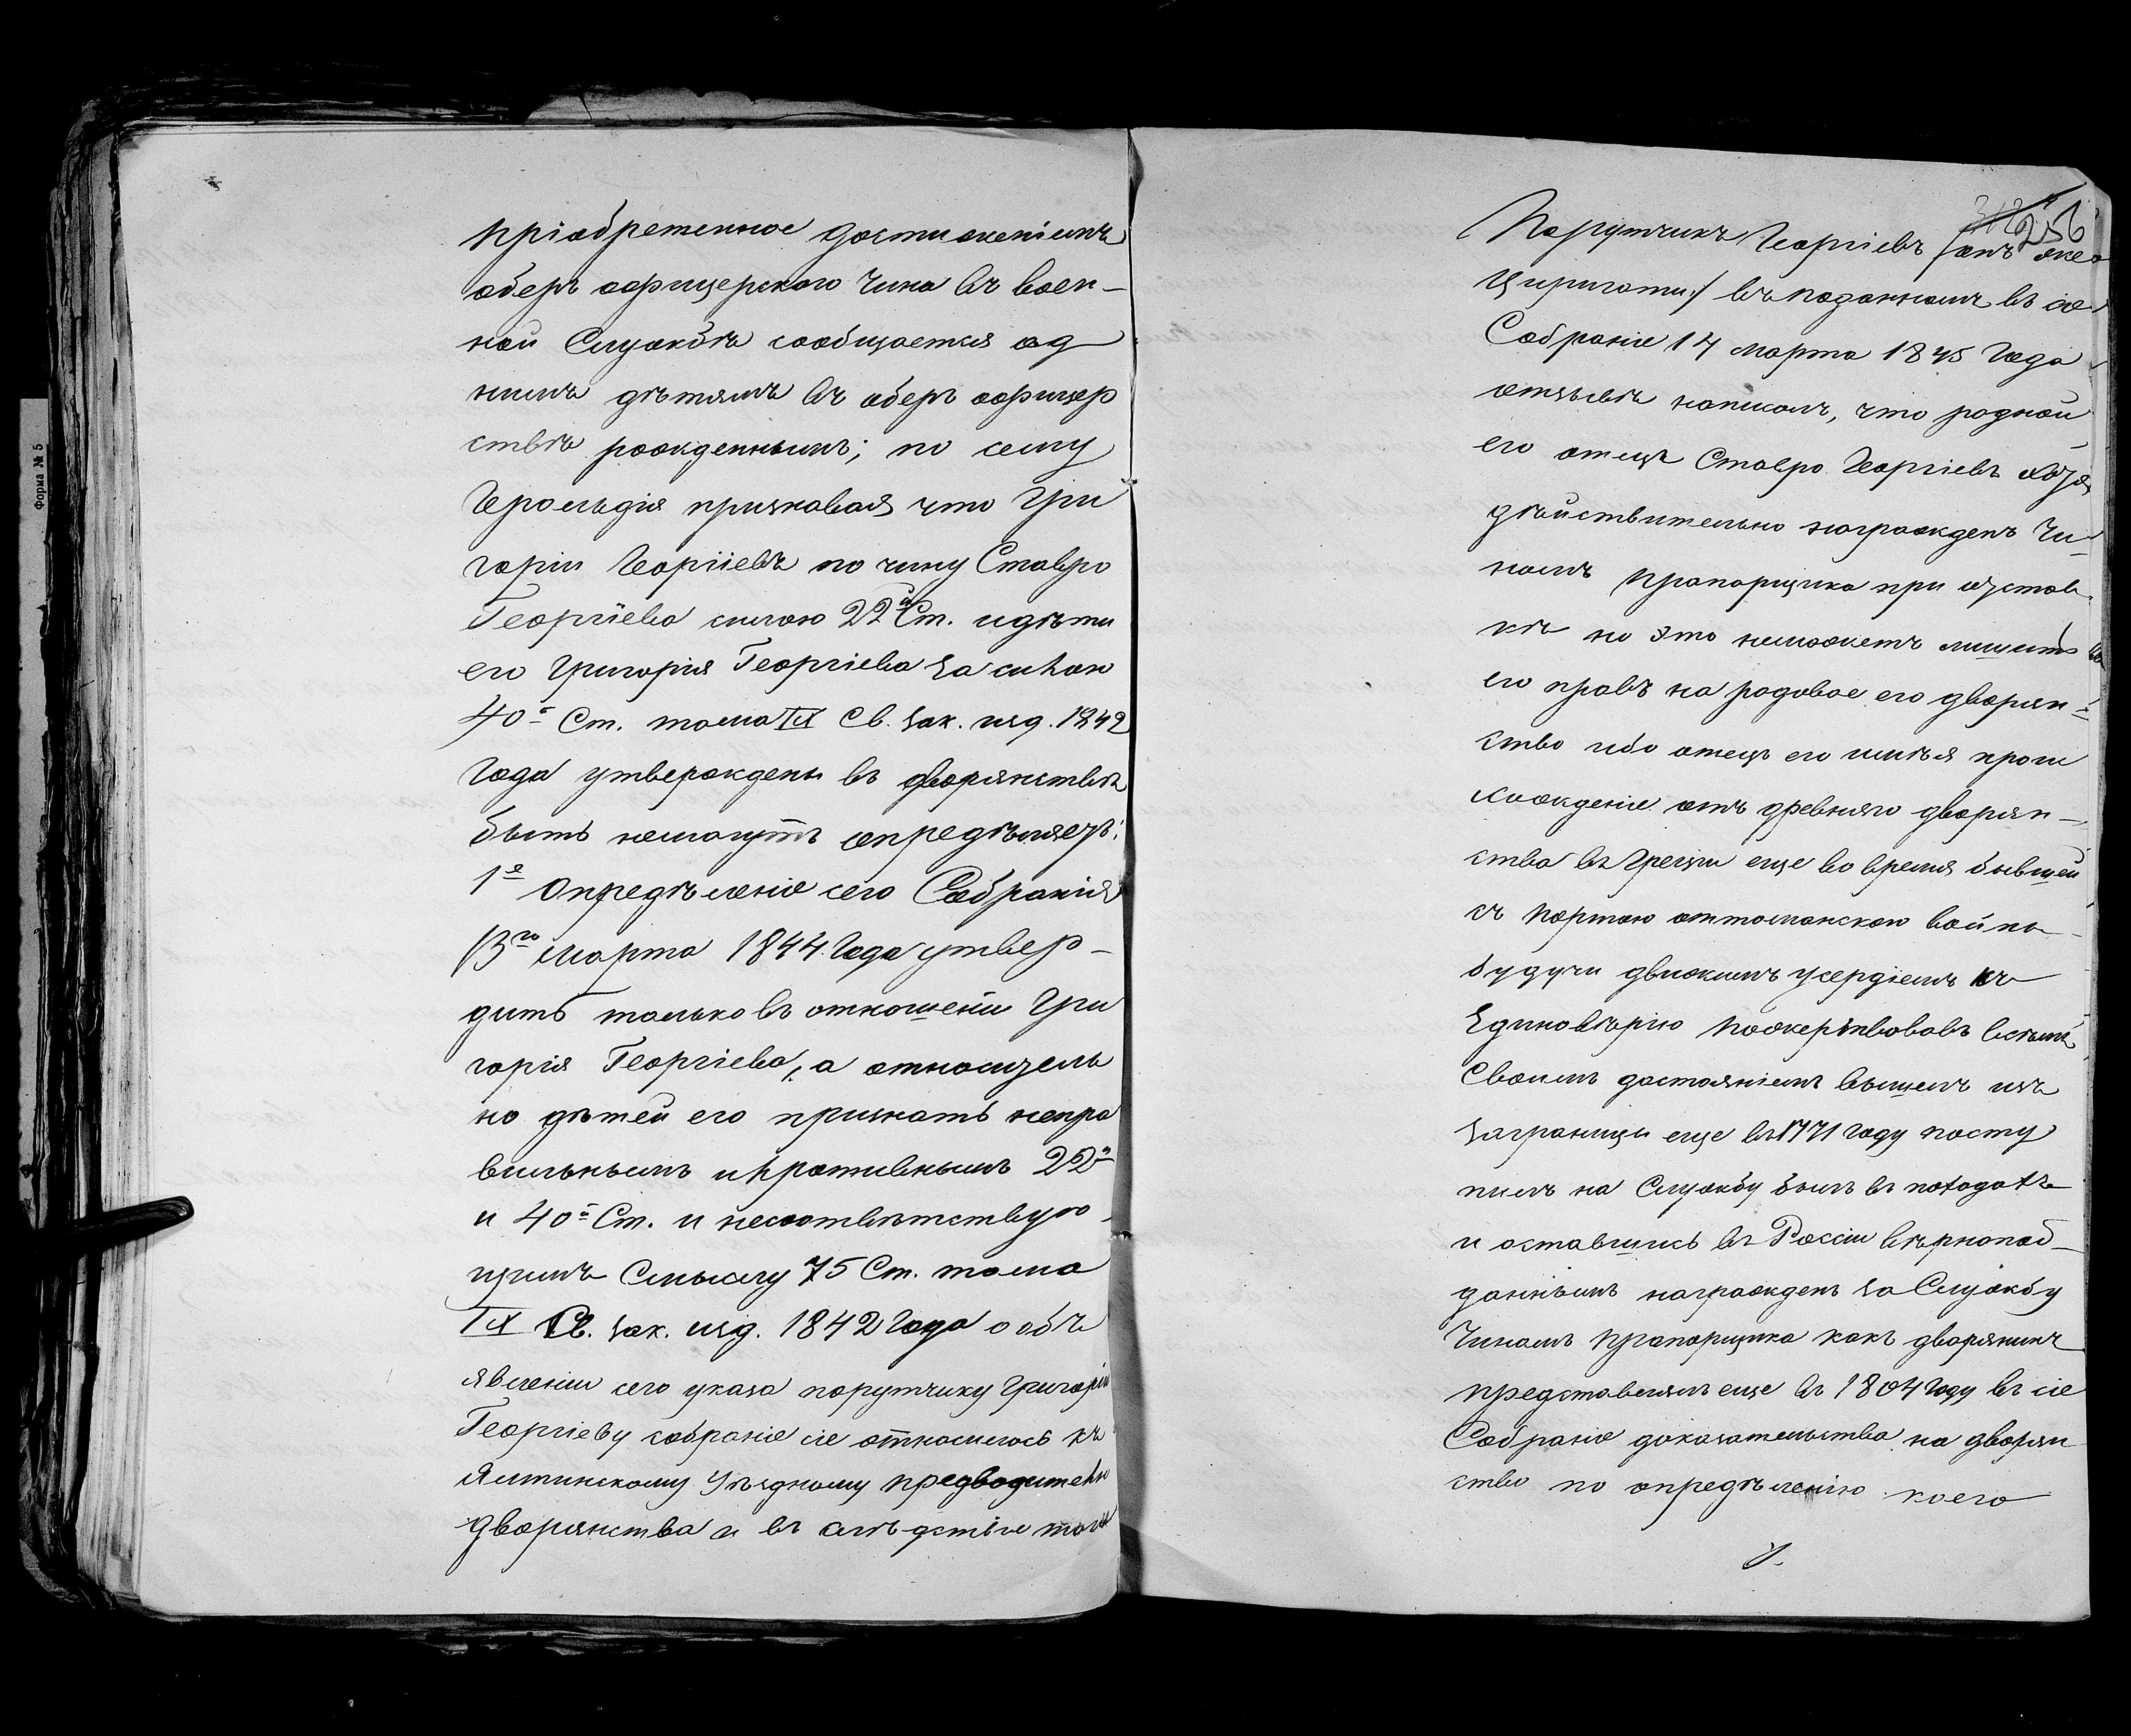 пріобретенное достиженіемъ
оберъ офицерскаго Чина въ воен-
ной Службѣ сообщается од
нимъ дѣтямъ въ оберъ офицер
ствѣ рожденнымъ; по сему
Герольдія признавая что Гри
горій Георгіевъ по чину Ставро
Георгіева силою 22й Ст. и дѣти
его Григорія Георгіева за силою
40й Ст. тома IX Св. Зак. изд. 1842
Года утверждены въ дворянствѣ
быть немогутъ опредѣляетъ:
1е Опредѣленіе сего Собранія
13го Марта 1844 Года утвер-
дить только въ отношеніи Гри
горія Георгіева, а относитель
но дѣтей его признать непра
вильнымъ и противнымъ 22й
и 40й Ст. и несоотвѣтствую-
щимъ Смыслу 75 Ст. тома
IX Св. Зак. изд. 1842 Года о объ
явленіи сего указа порутчику Григорію
Георгіеву собраніе сіе относилось къ
Ялтинскому Уѣздному предводителю
дворянства а въ слѣдствіе того
256
Порутчикъ Георгіевъ /онъ же
Цириготи/ въ поданномъ въ сіе
Собраніе 14 Марта 1845 Года
отзывѣ написалъ, что родной
его отецъ Ставро Георгіевъ хотя
дѣйствительно награжденъ Чи-
номъ Прапорщика при отстав
кѣ но это неможетъ лишить
его правъ на родовое его дворян-
ство ибо отецъ его имѣя проис
хожденіе отъ древняго дворян-
ства въ Греціи еще во время бывшей
съ Портою оттоманскою войны
будучи движимъ усердіемъ къ
Единовѣрію пожертвовавъ всѣмъ
Своимъ достояніемъ вышелъ изъ
заграницы еще въ 1771 Году посту
пилъ на Службу былъ въ походахъ
и оставшись въ Россіи вѣрнопод-
даннымъ награжденъ за Службу
Чиномъ Прапорщика какъ дворянинъ
представлялъ еще въ 1804 Году въ сіе
Собраніе доказательства на дворян
ство по опредѣленію коего